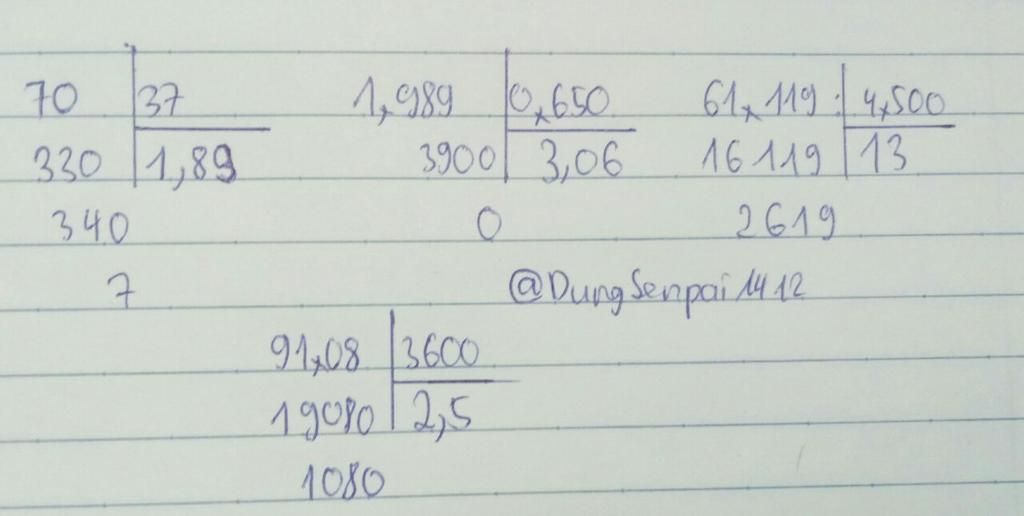 70 37 1,989 0,650 61,119 : 4,500
330 1,89 3900 3,06 16119 13
340 0 2619
7 @DungSenpai1412
91,08 3600
19080 2,5
1080